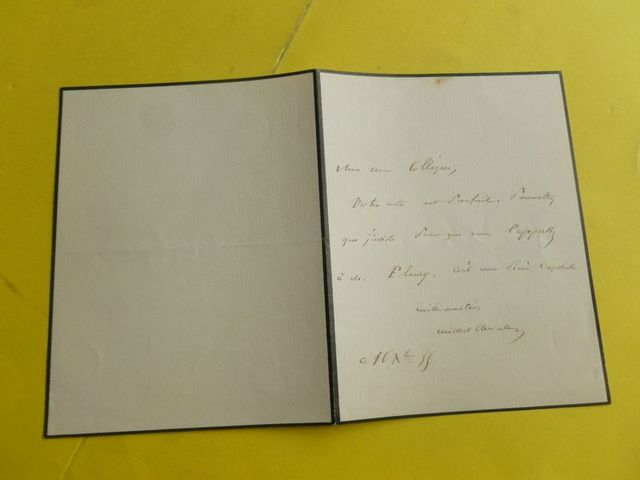 Mon cher Collègue,
Votre note est Parfaite. Permettez
que j'insiste Pour que vous l'apportiez
à M. Fleury. C'est une Pièce Capitale
mille amitiés,
Michel Chevalier
16 Xbre 55